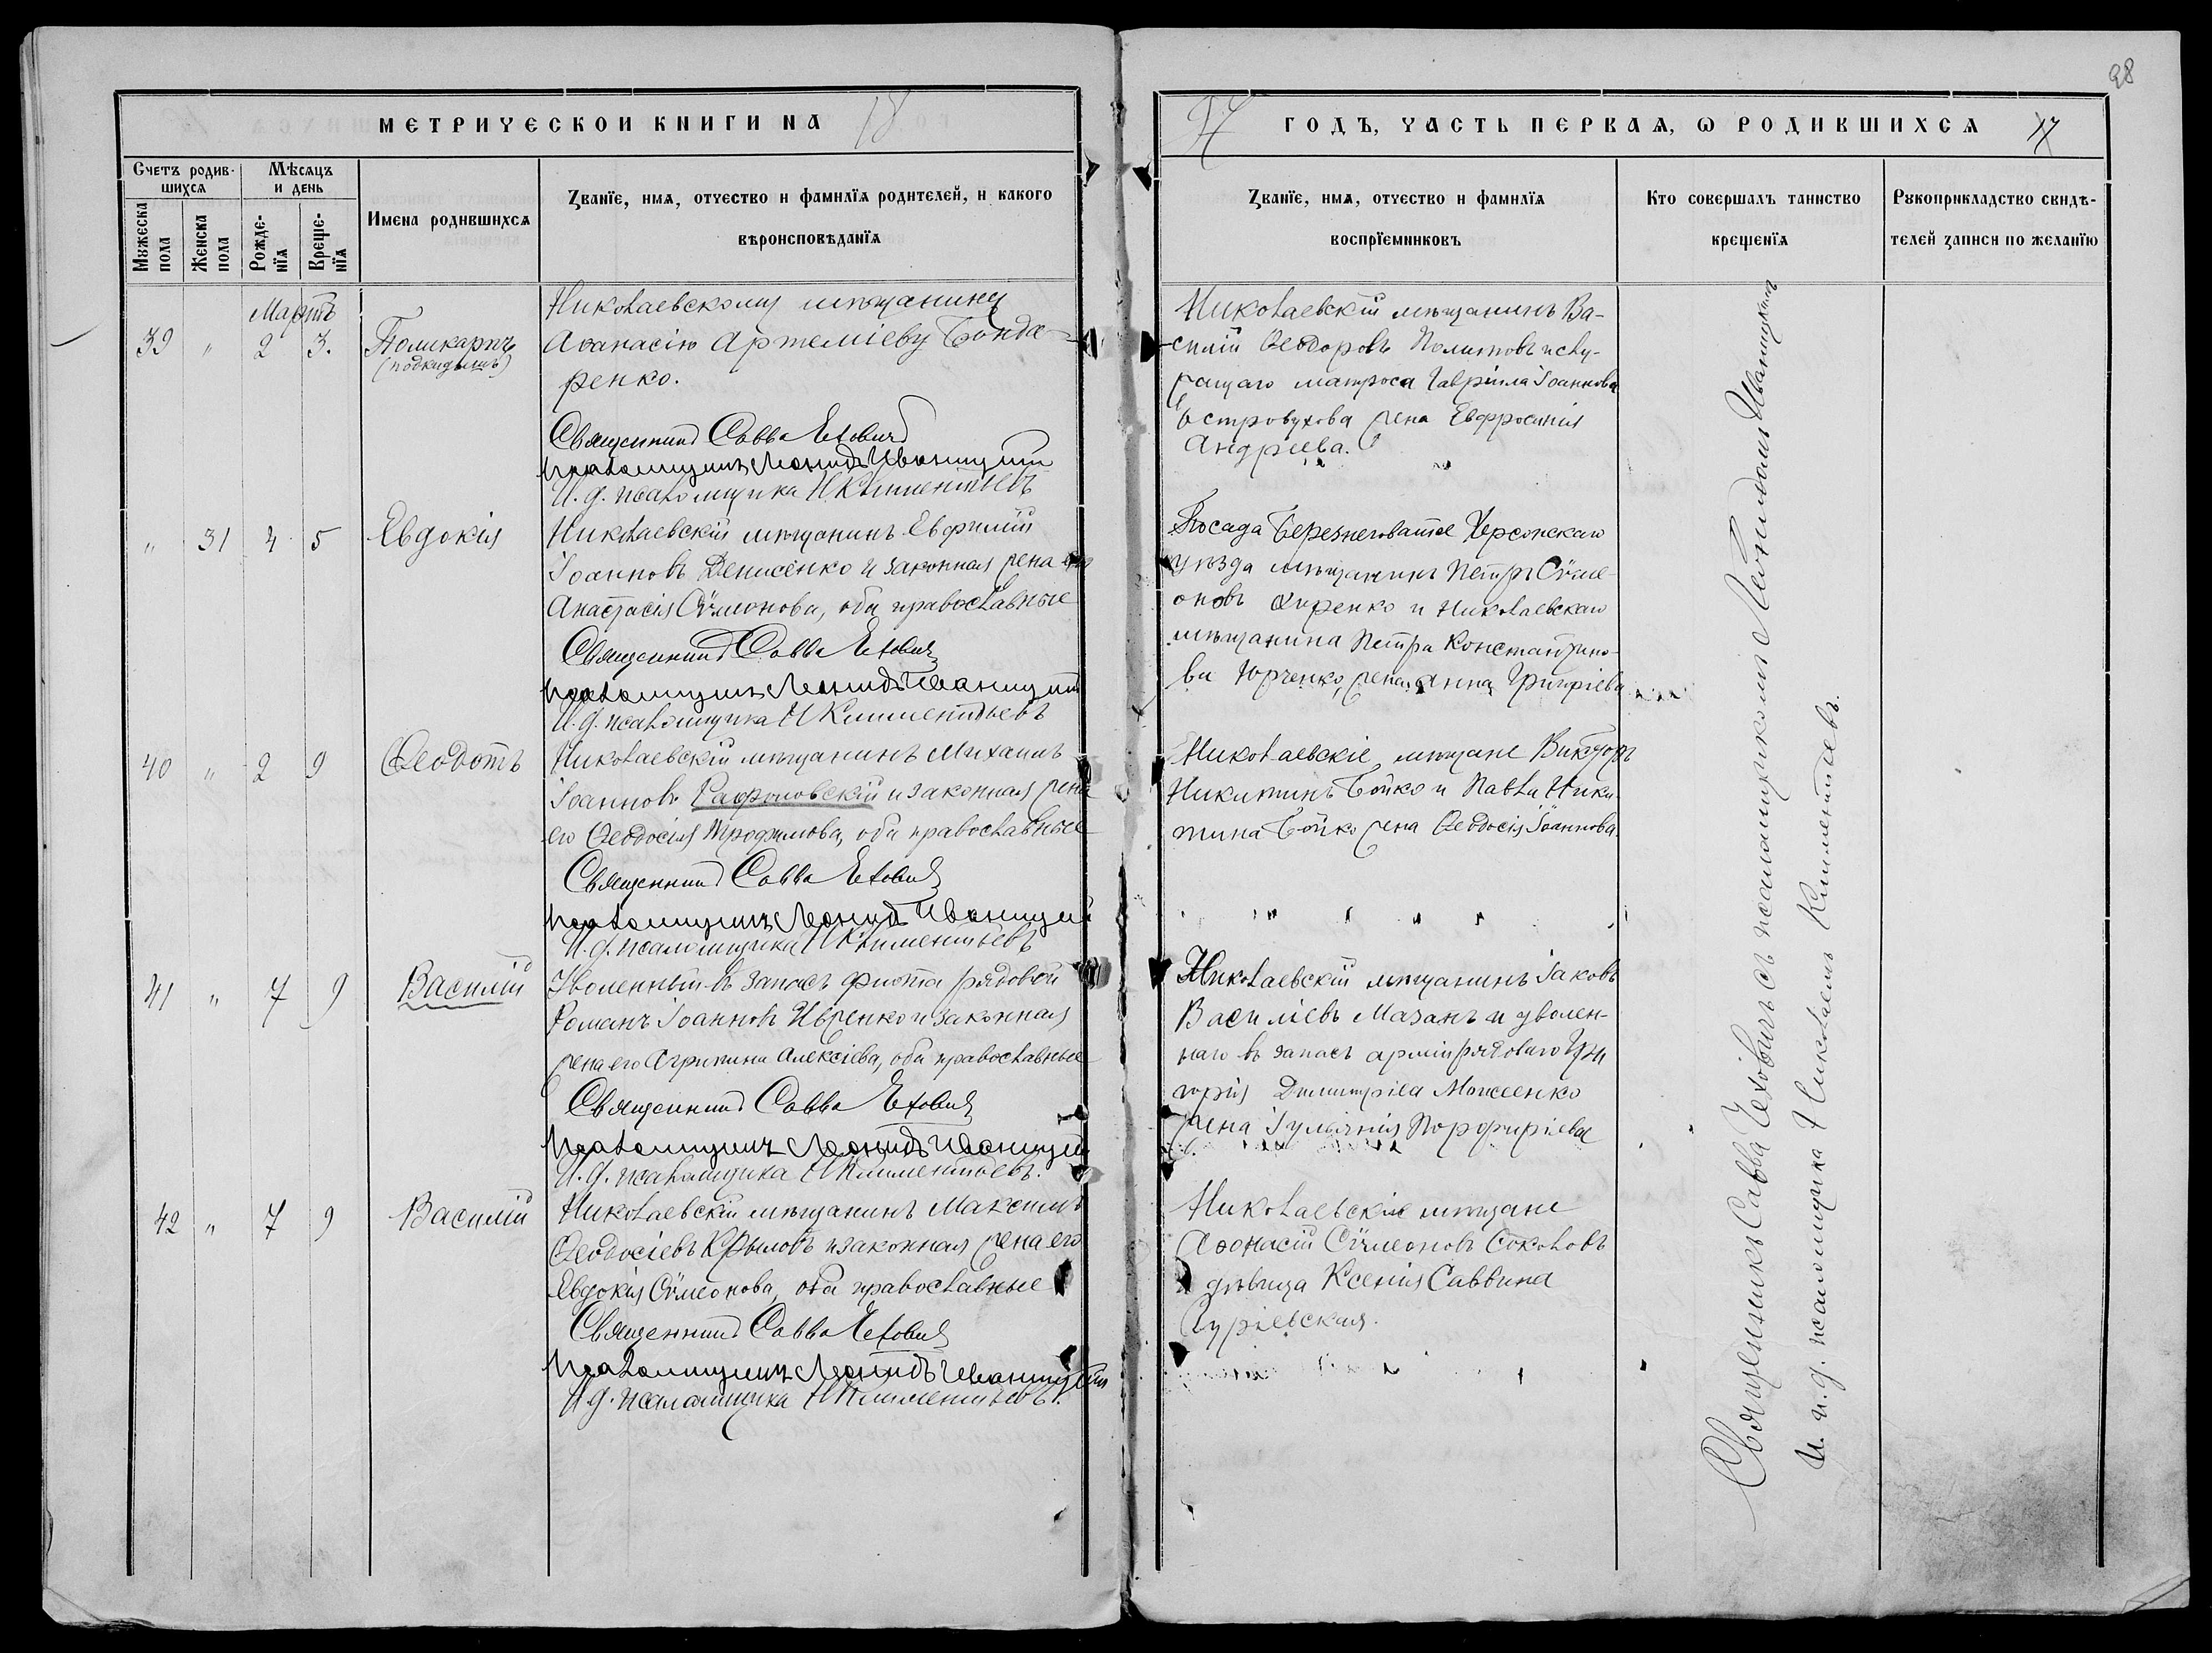 98
МЕТРИЧЕСКОИ КНИГИ НА 18
97 ГОДЪ, ЧАСТЬ ПЕРВАЯ, Ѡ РОДИВШИХСЯ 17
Счетъ родив-
шихся
Мѣсяцъ
и день
Мужеска
пола
Женска
пола
Рожде-
нїя
Креще-
нїя
Имена родившихся
Званїе, имя, отчество и фамилїя родителей, и какого
вѣроисповѣданїя
Званїе, имя, отчество и фамилїя
воспрїемниковъ
Кто совершалъ таинство
крещенїя
Рукоприкладство свидѣ-
телей записи по желанїю
Мартъ
39 " 2 3. Поликарпъ
(подкидышъ)
Николаевскому мѣщанину
Аѳанасію Артеміеву Бонда-
ренко.
Священникъ Савва Чехович
Псаломщикъ Леонидъ Иваницкій
И. д. псаломщика Н Климентьевъ
Николаевскій мѣщанинъ Ва-
силій Ѳеодоровъ Политовъ и слу-
жащаго матроса Гавріила Іоаннова
Островухова жена Евфросинія
Андріева.
" 31 4 5 Евдокія
Николаевскій мѣщанинъ Евфимій
Іоанновъ Денисенко и законная жена его
Анастасія Сѵмеонова, оба православные
Священникъ Савва Чехович
Псаломщикъ Леонидъ Иваницкій
И. д. псаломщика Н Климентьевъ
Посада Березнеговатое Херсонскаго
уѣзда мѣщанинъ Петръ Сѵме-
оновъ и Николаевскаго
мѣщанина Петра Константино-
ва Юрченко жена Анна Григоріева
40 " 2 9 Ѳеодотъ
Николаевскій мѣщанинъ Михаилъ
Іоанновъ и законная жена
его Ѳеодосія Трофимова, оба православные
Священникъ Савва Чехович
Псаломщикъ Леонидъ Иваницкій
И. д. псаломщика Н Климентьевъ
Николаевскіе мѣщане Викторъ
Никитинъ Бойко и Павла Ники-
тина Бойко жена Ѳеодосія Іоаннова
41 " 7 9 Василій
Уволенный въ запасъ флота рядовой
Романъ Іоанновъ Ивженко и законная
жена его Агрипина Алексіева, оба православные
Священникъ Савва Чехович
Псаломщикъ Леонидъ Иваницкій
И. д. псаломщика Н Климентьевъ.
Николаевскій мѣщанинъ Іаковъ
Василіевъ Мазанъ и уволен-
наго въ запасъ арміи рядоваго Гри
горія Димитріева
жена Іуліанія Порфиріева
42 " 7 9 Василій
Николаевскій мѣщанинъ Максимъ
Ѳеодосіевъ Крыловъ и законная жена его
Евдокія Сѵмеонова, оба православные
Священникъ Савва Чехович
Псаломщикъ Леонидъ Иваницкій
И. д. псаломщика Н Климентьевъ.
Николаевскіе мѣщане
Аѳонасій Сѵмеоновъ Соколовъ
и дѣвица Ксенія Саввина
Священникъ Савва Чеховичъ съ псаломщикомъ Леонидомъ Иваницкимъ
И. и. д. псаломщика Николаемъ Климентьевъ.